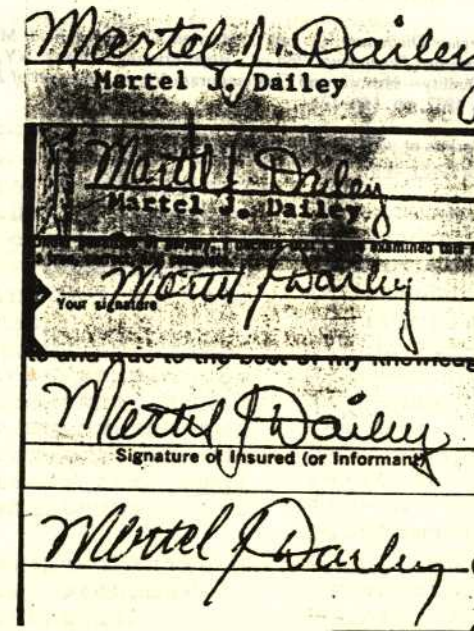 Martel J. Dailey
Martel J. Dailey
Martel J. Dailey
Martel J. Dailey
examined this
Martel J. Dailey
Your signature
to and true to the best of my knowledg
Martel J Dailey
Signature of Insured (or Informant)
Martel J Dailey